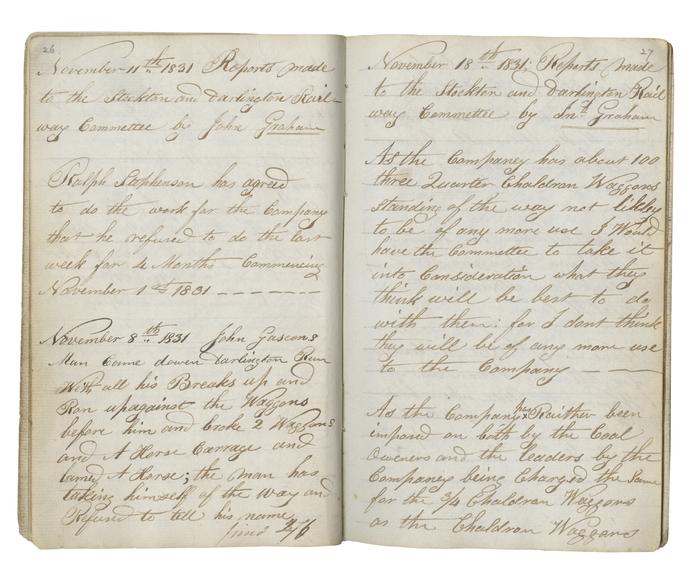 26
November 11th 1831 Reports made
to the Stockton and Darlington Rail-
way Committee by John Graham
Ralph Stephenson has agreed
to do the work for the Company
that he refused to do the last
week for 4 Months Commencing
November 1st 1831 – – – – –
November 8th 1831 John Gascons
Man Came down Darlington Run
With all his Breaks up and
Ran upagainst the Waggons
before him and broke 2 Waggons
and A Horse Carrage and
lamed A Horse; the man has
taking himself of the way and
Refused to tell his name
fined 2/6
27
November 18th 1831 Reports made
to the Stockton and Darlington Rail
way Committee by Jno Graham
As the Companey has about 100
three Quarter Chaldron Waggons
Standing of the way not likley
to be of any more use I Would
have the Committee to take it
into Consideration what they
think will be best to do
with them: for I dont think
they will be of any more use
to the Company – –
As the Company has Raither been
imposed on both by the Coal
Owners and the leaders by the
Companey being Charged the Same
for the 3/4 Chaldron Waggons
as the Chaldron Waggons